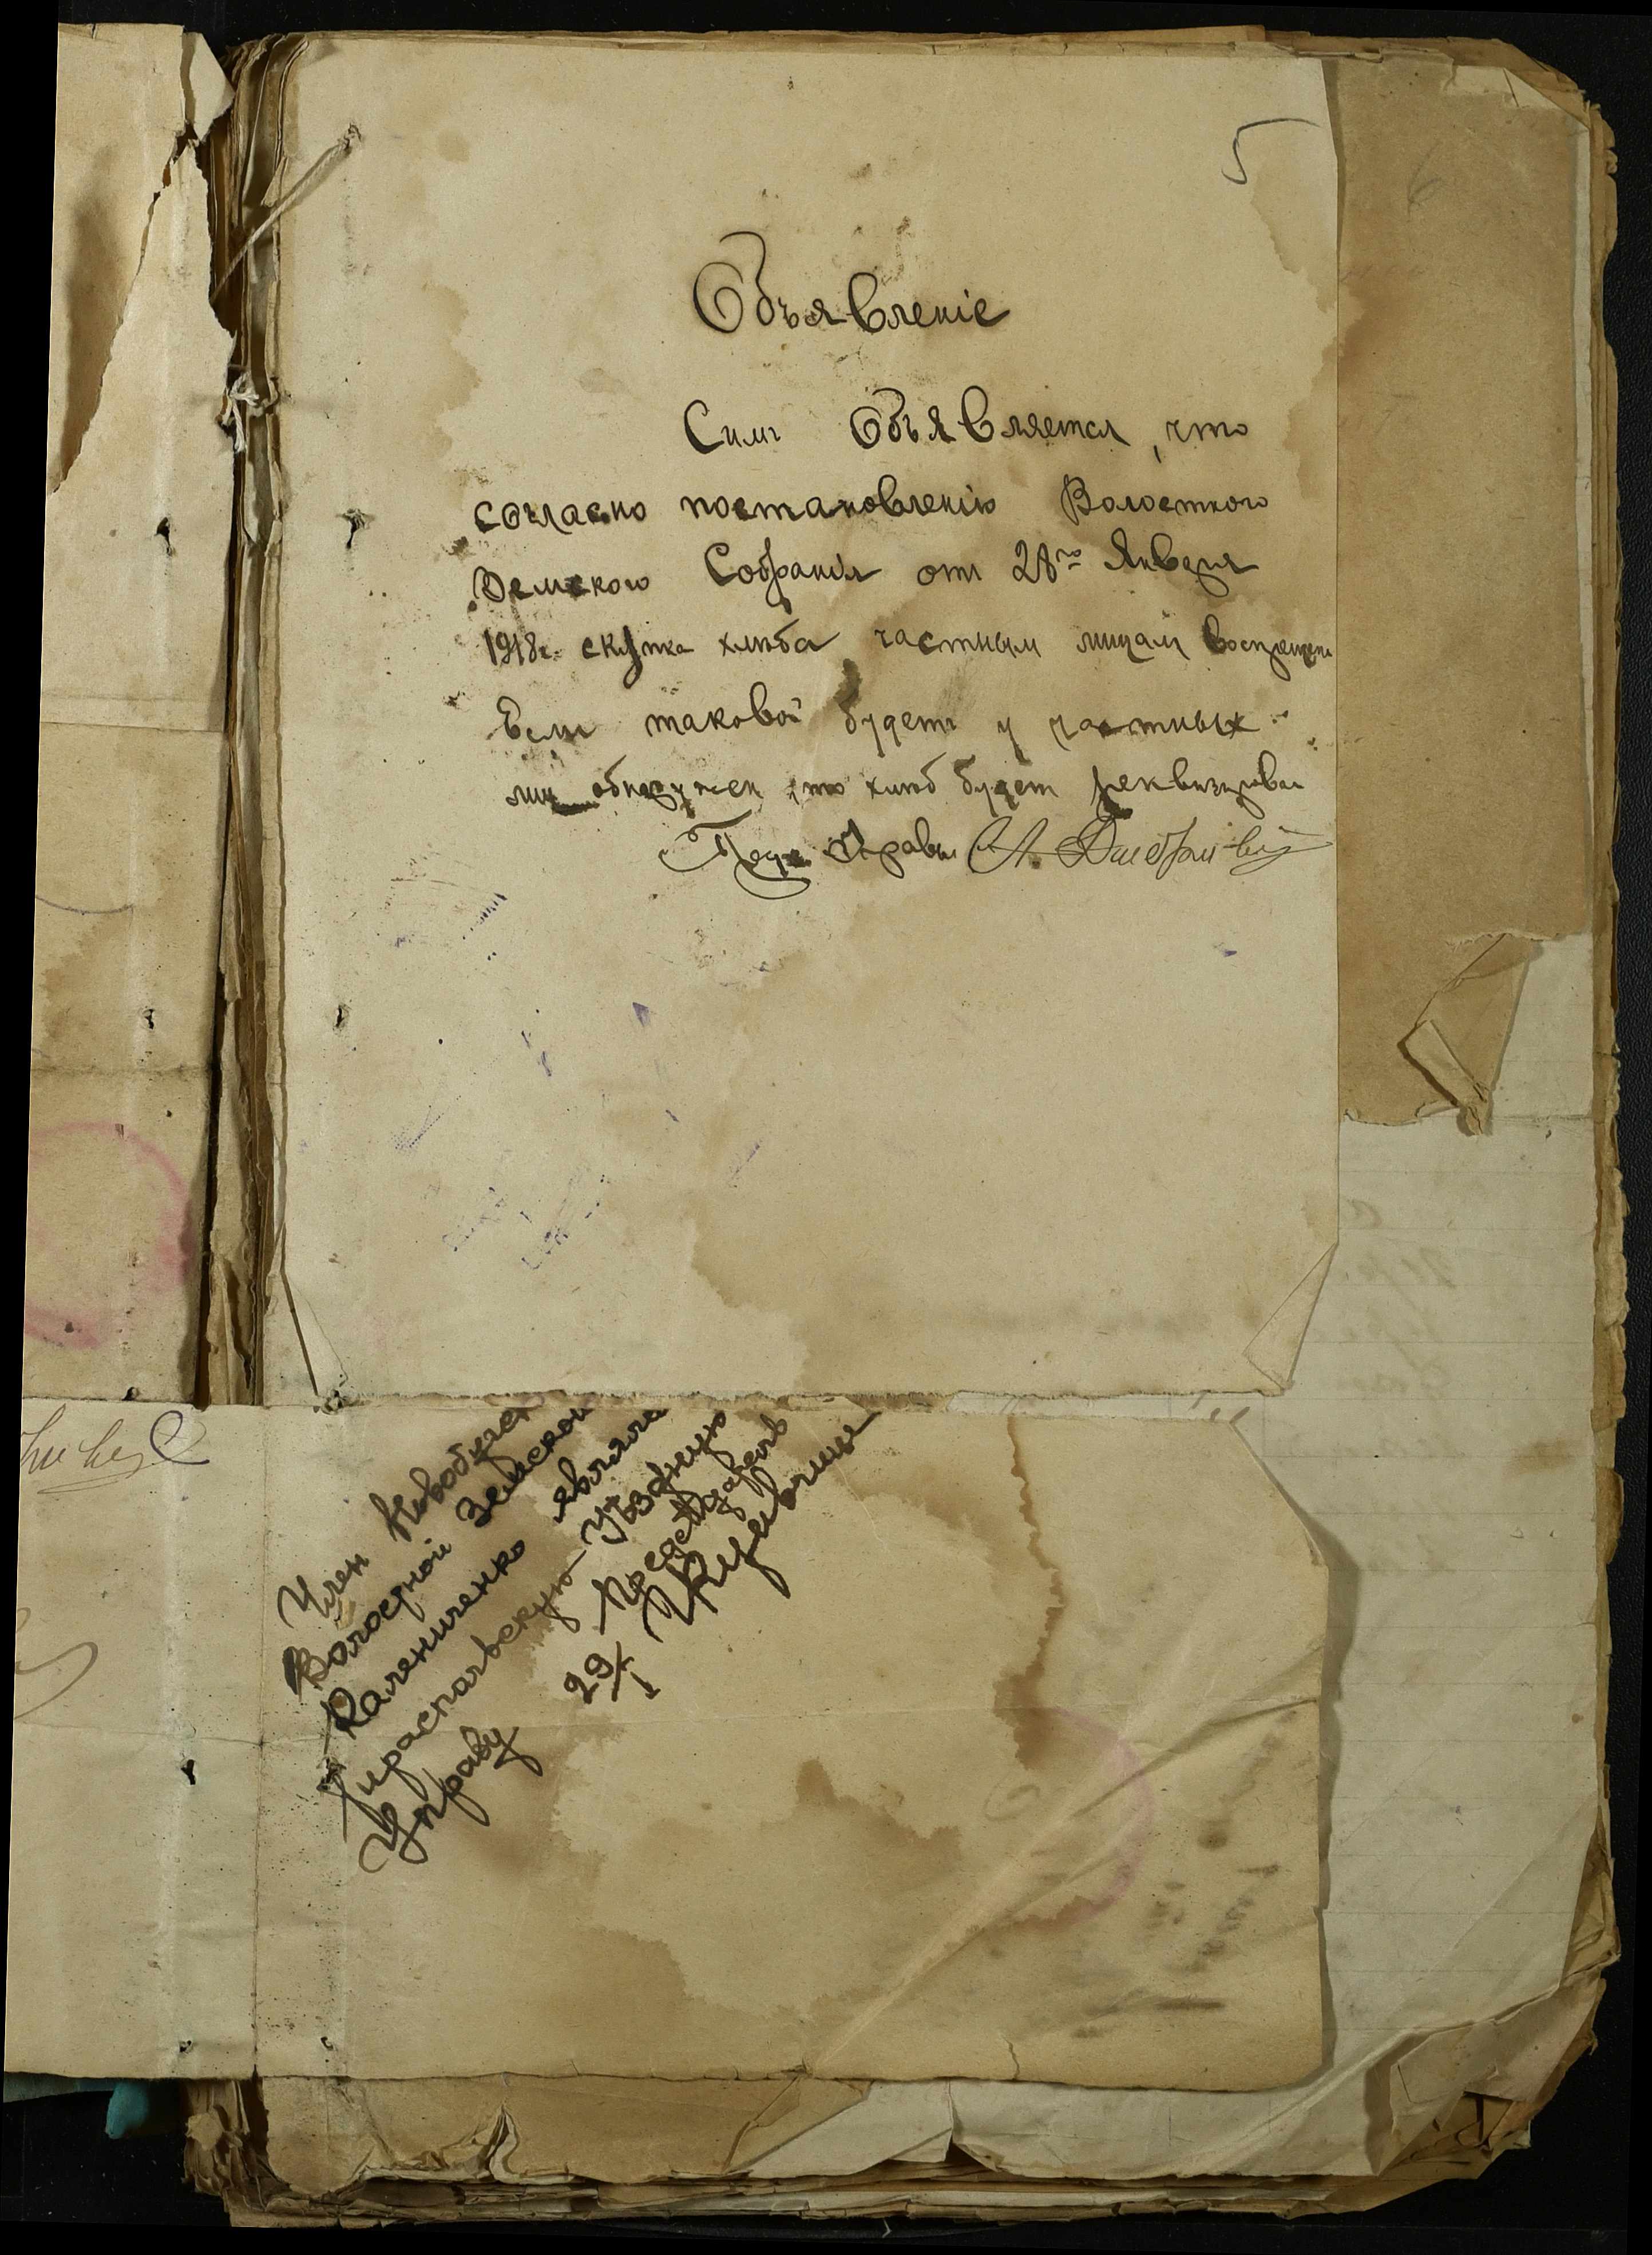 5
6
Объявленіе
Симъ Объявляется, что
согласно постановленію Волостного
Земского Собранія отъ 28го Января
1918г. скупка хлѣба частным лицам воспрещена
Если таковой будетъ у частных
лиц обнаружен, то хлѣб будет реквизирован
Пред. Управы
Член Новобугск
Волостной Земской
Калениченко являлся
Тираспольскую Уѣздную
Управу
Председатель
29/I